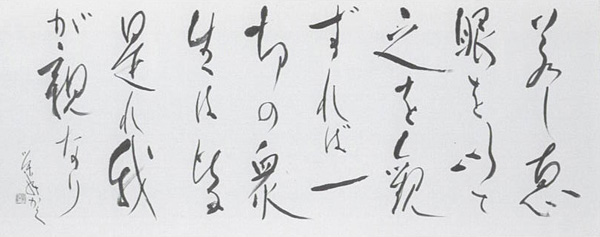 若し恵
眼を以て
之を観
ずれば一
切の衆
生は皆
是れ我
が親なり